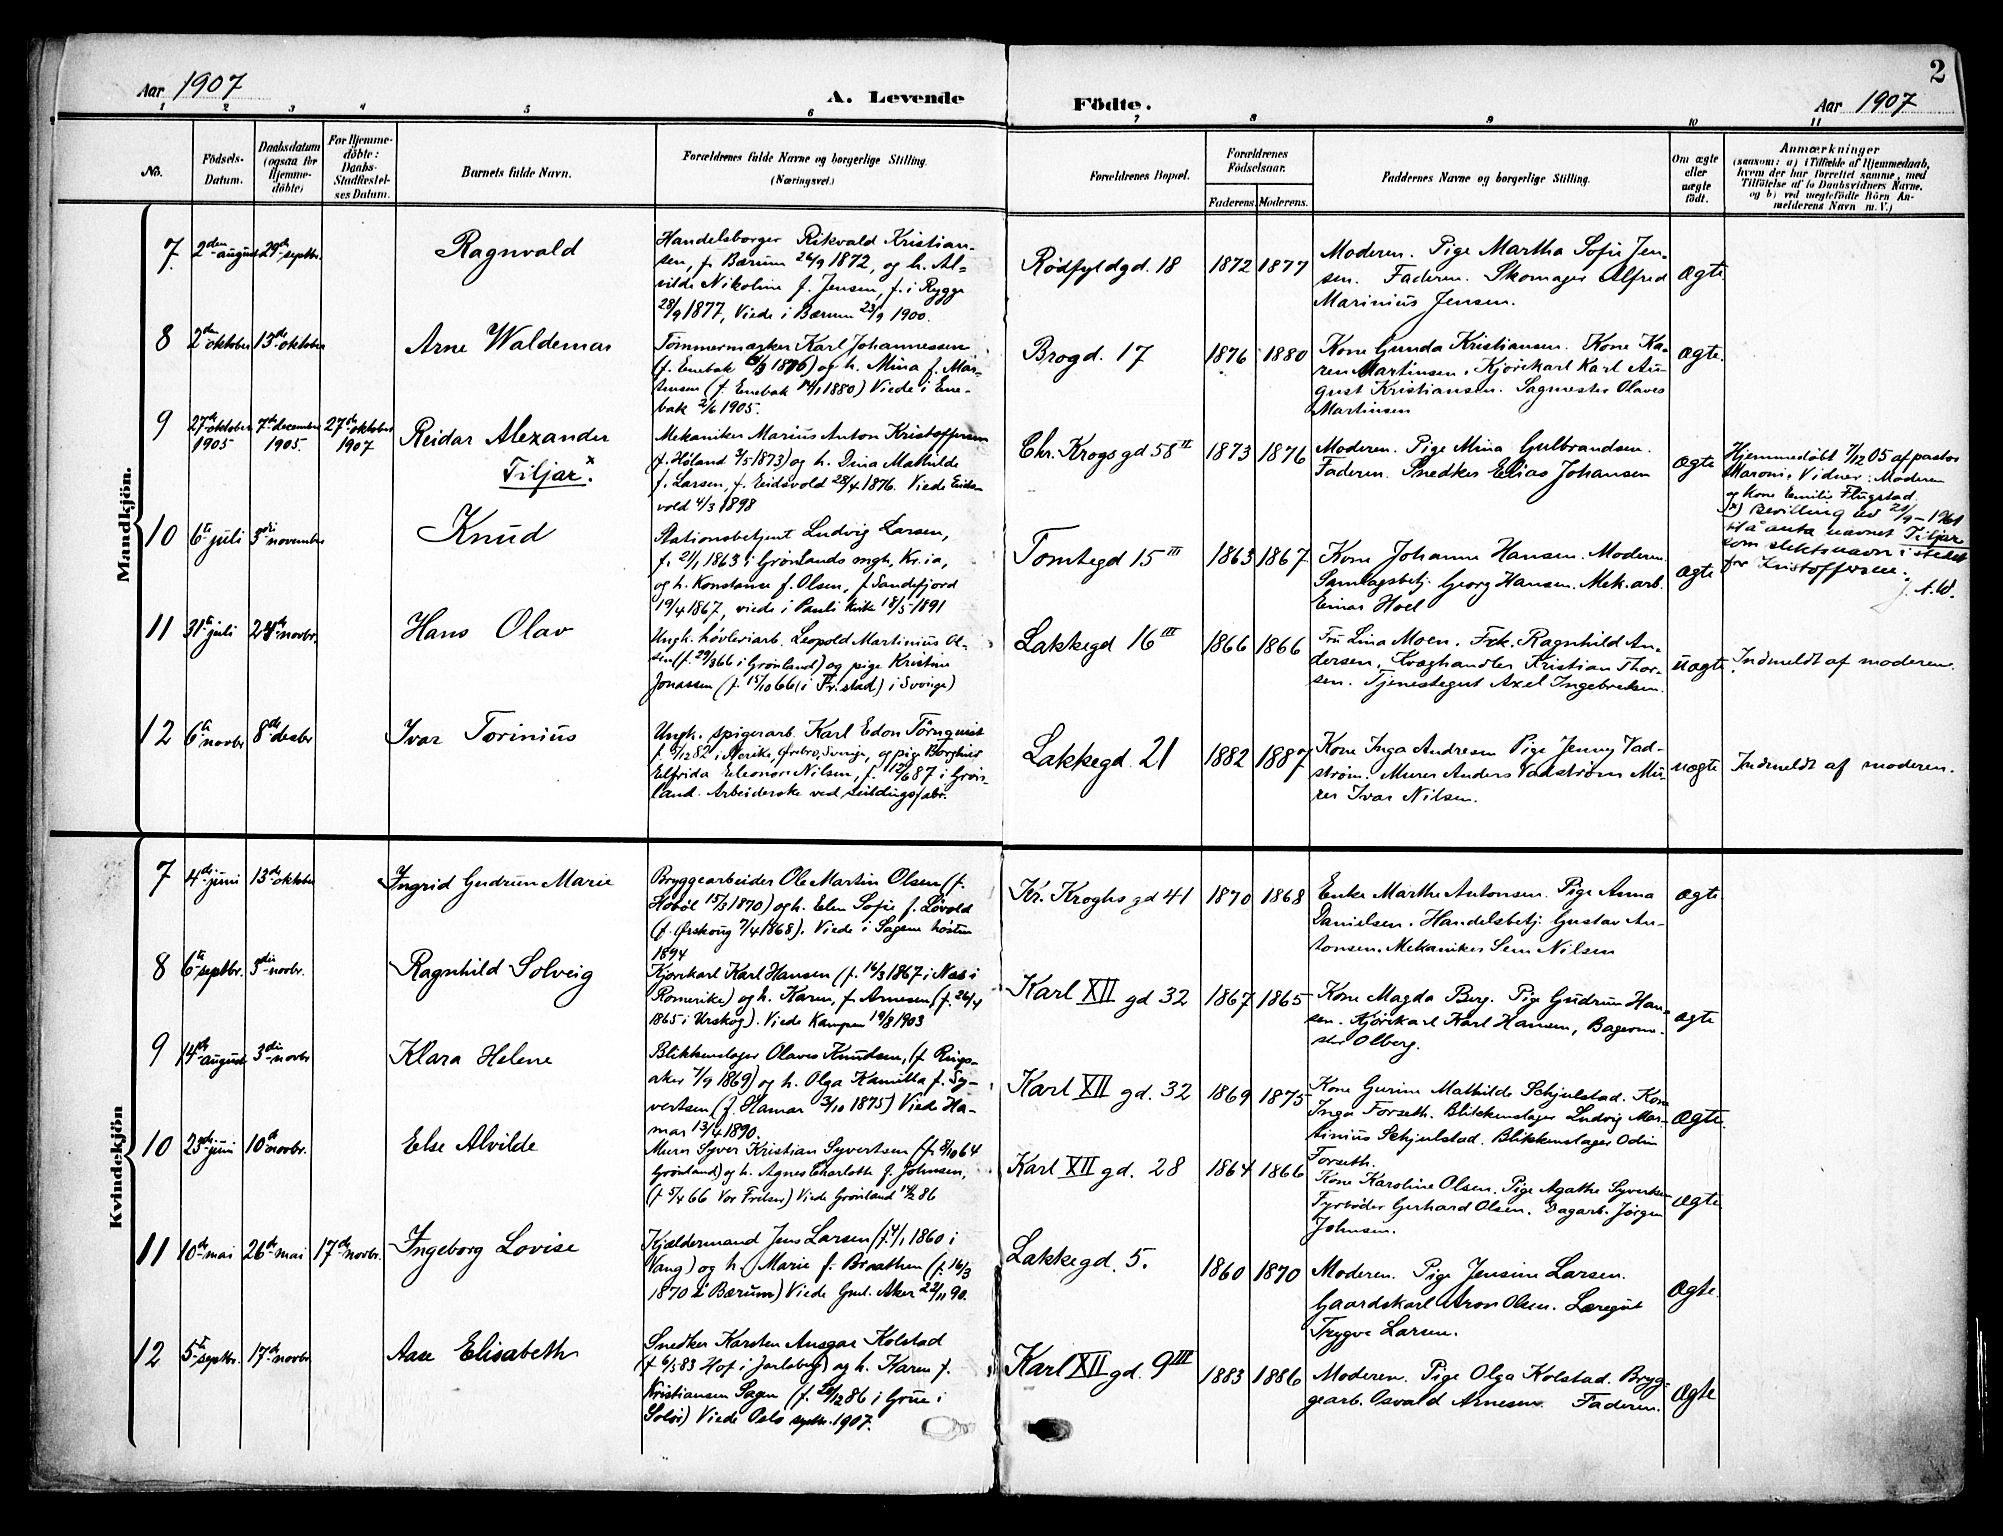 2
Aar 1907
A. Levende
Födte.
Aar 1907
1 2 3 4 5 6 7 8 9 10 11
No.
Födsels-
Datum.
Daabsdatum
(ogsaa for
Hjemme-
döbte)
For Hjemme-
döbte:
Daabs-
Stadfæstel-
ses Datum.
Barnets fulde Navn.
Forældrenes fulde Navne og borgerlige Stilling.
(Næringsvei.)
Forældrenes Bopæl.
Forældrenes
Födselsaar.
Faderens. Moderens.
Faddernes Navne og borgerlige Stilling.
Om ægte
eller
uægte
födt.
Anmærkninger
(saasom: a) i Tilfælde af Hjemmedaab,
hvem der har forrettet samme, med
Tilföielse af to Daabsvidners Navne.
og b) ved uægtefödte Börn An-
melderens Navn m. V.)
Mandkjön.
7
2den august
29de septbr.
Ragnvald
Handelsborger Rikvald Kristian-
sen, f. Bærum 26/9 1872, og h. Al-
vilde Nikoline f. Jensen, f. i Rygge
28/9 1877, Viede i Bærum 23/9 1900.
Rødfyldgd. 18
1872 1877
Moderen. Pige Martha Sofie Jen-
sen. Faderen. Skomager Alfred
Marinius Jensen.
ægte
8
2den oktober
13de oktober
Arne Waldemar
Tømmermærker Karl Johannessen
(f. Enebak 1876) og h. Mina f. Mar-
tinsen (f. Enebak 14/1 1880) Viede i Ene-
bak 2/6 1905.
Brogd. 17
1876 1880
Kone Gunda Kristiansen. Kone Ka-
ren Martinsen. Kjørekarl Karl Au-
gust Kristiansen. Sagmester Olaves
Martinsen
ægte.
9
27de oktober
1905
7de december
1905.
27de oktober
1907
Reidar Alexander
Tiljar x.
Mekaniker Marius Anton Kristoffersen
(f. Høland 3/5 1873) og h. Dina Mathilde
f. Larsen, f. Eidsvold 28/4 1876. Viede Eids-
vold 4/3 1898
Chr. Krogs gd 58 II
1873 1876
Moderen. Pige Mina Gulbrandsen.
Faderen. Snedker Elias Johansen
ægte
Hjemmedøbt 7/12 05 af pastor
Maroni. Vidner: Moderen
og Kone Emilie Flugstad.
x) Bevilling av 21/9-1961
til å anta navnet Tiljar
som slektsnavn i stedet
for Kristoffersen.
10
6te juli
3die november
Knud
Stationsbetjent Ludvig Larsen,
f. 21/1 1863 i Grønlands mgh, Kr.ia,
og h. Konstanse f. Olsen, f. Sandefjord
19/4 1867, viede i Pauli kirke 18/5 1891
Tomtegd 15 III
1863 1867
Kone Johanne Hansen. Moderen.
Samlagsbetj. Georg Hansen. Mek. arb.
Einar Hoel
ægte
11
31te juli
24de novbr.
Hans Olav
Ungk. høvleriarb. Leopold Martinius Ol-
sen (f. 29/3 66 i Grønland) og pige Kristine
Jonassen (f. 15/10 66 i Fr.stad) i Sverige)
Lakkegd 16 III
1866 1866
Fru Lina Moen. Frk. Ragnhild An-
dersen. Kvæghandler Kristian Thor-
sen. Tjenestegut Axel Ingebretsen.
uægte
Indmeldt af moderen.
12
6te novbr
8de desbr
Ivar Torinius
Ungk. spigerarb. Karl Edon Törnquist
f. 6/12 82 i Nerike, Örebro, Sverige, og pige Borghild
Elfrida Eleonora Nilsen, f. 12/6 87 i Grøn-
land. Arbeiderske ved sildugsfabr.
Lakkegd. 21
1882 1887
Kone Inga Andresen Pige Jenny Vad-
strøm. Murer Anders Vadstrøm Mu-
rer Ivar Nilsen.
uægte
Indmeldt af moderen.
Kvindekjön
7
4de juni
13de oktober
Ingrid Gudrun Marie
Bryggearbeider Ole Martin Olsen (f.
Hobøl 15/3 1870) og h. Elen Sofie f. Løvold
(f. Ørskoug 7/4 1868). Viede i Sagene høsten
1894
Kr. Kroghs gd 41
1870 1868
Enke Marthe Antonsen. Pige Anna
Danielsen. Handelsbetj. Gustav An-
tonsen. Mekaniker Sem Nilsen
ægte
8
6te septbr.
3die novbr.
Ragnhild Solveig
Kjørekarl Karl Hansen (f. 14/3 1867 i Næs i
Romerike) og h. Karen, f. Arnesen (f. 26/4
1865 i Urskog). Viede Kampen 19/8 1903
Karl XII gd 32
1867 1865
Kone Magda Berg. Pige Gudrun Han-
sen. Kjørekarl Karl Hansen, Bagerme-
ster Olberg.
ægte
9
14de august
3die novbr
Klara Helene
Blikkenslager Olaves Knudsen, (f. Rings-
aker 7/9 1869) og h. Olga Kamilla f. Sy-
vertsen (f. Hamar 3/10 1875) Viede Ha-
mar 13/4 1890.
Karl XII gd. 32
1869 1875
Kone Gurine Mathilde Schjulstad. Kone
Inga Forseth. Blikkenslager Ludvig Mar-
tinius Schjulstad. Blikkenslager Odin
Forseth.
ægte
10
23de juni
10de novbr.
Else Alvilde
Murer Syver Kristian Syvertsen (f. 8/10 64
Grønland) og h. Agnes Charloth f. Johnsen,
(f 5/4 66 Vor Frelser) Viede Grønland 14/2 86
Karl XII gd. 28
1864 1866
Kone Karoline Olsen. Pige Agathe Syvertsen
Fyrbøder Gerhard Olsen. Dagarb. Jørgen
Johnsen.
ægte
11
10de mai
26de mai
17de novbr.
Ingeborg Lovise
Kjældermand Jens Larsen (f. 4/1 1860 i
Vang) og h. Marie f. Braathen (f. 16/3
1870 i Bærum) Viede Gml. Aker 22/11 90.
Lakkegd. 5.
1860 1870
Moderen. Pige Jensine Larsen.
Gaardskarl Aron Olsen. Læregut
Trygve Larsen.
ægte.
12
5te septbr.
17de novbr
Aase Elisabeth
Snedker Karsten Ansgar Kolstad
(f 6/5 83 Hof i Jarlsberg) og h. Karen f.
Kristiansen Sagen (f. 28/12 86 i Grue i
Solør) Viede Oslo septbr. 1907.
Karl XII gd. 9 III
1883 1886
Moderen. Pige Olga Kolstad. Bryg-
gearb. Osvald Arnesen. Faderen.
ægte